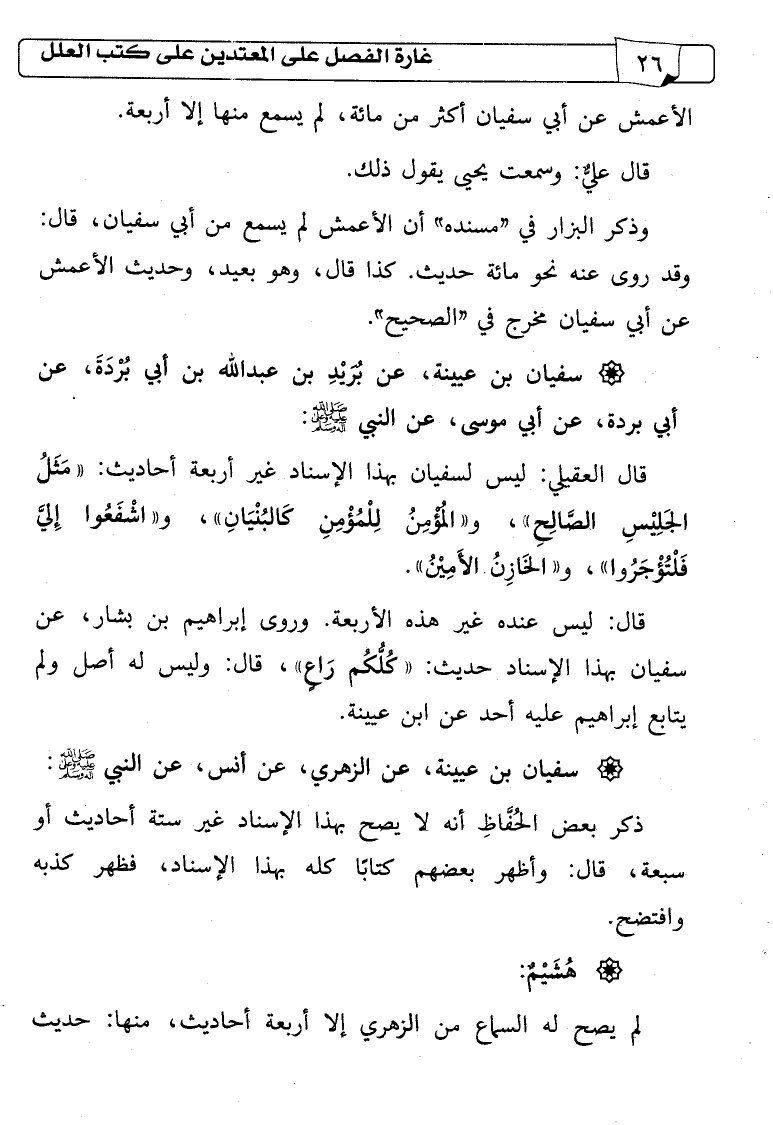 ٢٦
غارة الفصل على المعتدين على كتب العلل
الأعمش عن أبي سفيان أكثر من مائة، لم يسمع منها إلا أربعة.
قال عليٌّ: وسمعت يحيى يقول ذلك.
وذكر البزار في «مسنده» أن الأعمش لم يسمع من أبي سفيان، قال:
وقد روى عنه نحو مائة حديث. كذا قال، وهو بعيد، وحديث الأعمش
عن أبي سفيان مخرج في «الصحيح».
۞ سفيان بن عيينة، عن بُرَيْدِ بن عبدالله بن أبي بُرْدَةَ، عن
أبي بردة، عن أبي موسى، عن النبي ﷺ:
قال العقيلي: ليس لسفيان بهذا الإسناد غير أربعة أحاديث: «مَثَلُ
الجَلِيْسِ الصَّالِحِ»، و«المُؤْمِنُ لِلْمُؤْمِنِ كَالبُنْيَانِ»، و«اشْفَعُوا إِلَيَّ
فَلْتُؤْجَرُوا»، و«الخَازِنُ الأَمِيْنُ».
قال: ليس عنده غير هذه الأربعة. وروى إبراهيم بن بشار، عن
سفيان بهذا الإسناد حديث: «كُلُّكُم رَاعٍ»، قال: وليس له أصل ولم
يتابع إبراهيم عليه أحد عن ابن عيينة.
۞ سفيان بن عيينة، عن الزهري، عن أنس، عن النبي ﷺ:
ذكر بعض الحُفَّاظِ أنه لا يصح بهذا الإسناد غير ستة أحاديث أو
سبعة، قال: وأظهر بعضهم كتابًا كله بهذا الإسناد، فظهر كذبه
وافتضح.
۞ هُشَيْمٌ:
لم يصح له السماع من الزهري إلا أربعة أحاديث، منها: حديث